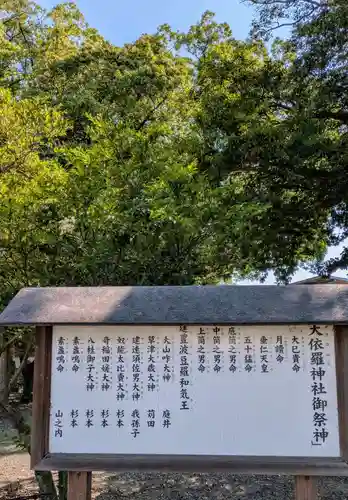 大依羅神社御祭神
大己貴命
月讀命
垂仁天皇
五十猛命
底筒之男命
中筒之男命
上筒之男命
建豊波豆羅和気王
大山咋大神 庭井
草津大歳大神 苅田
建速須佐男大神 我孫子
奴能太比賣大神 杉本
奇稲田媛大神 杉本
八柱御子大神 杉本
素盞嗚命 杉本
素盞嗚命 山之内